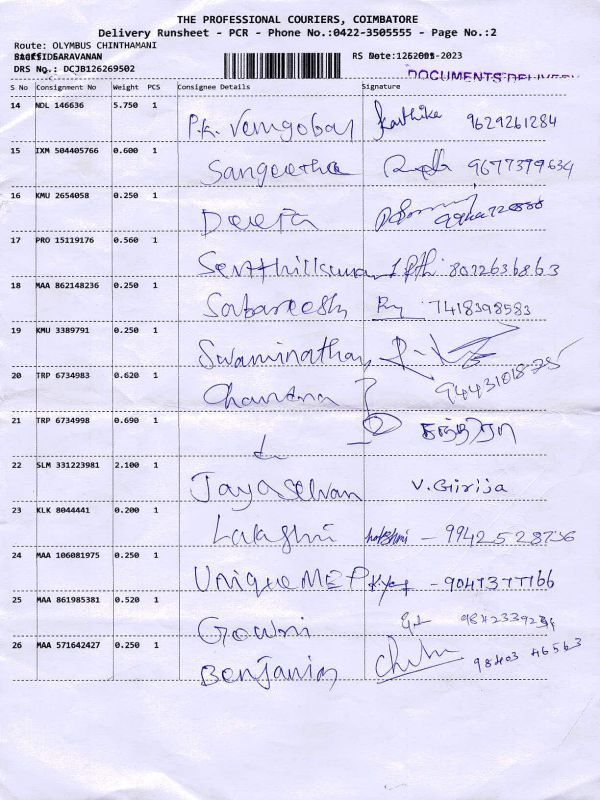 THE PROFESSIONAL COURIERS, COIMBATORE
Delivery Runsheet - PCR - Phone No.:0422-3505555 - Page No.:2
Route: OLYMBUS CHINTHAMANI
SARAVANAN RS Date: -2023
DRS No.: DCJB126269502 DOCUMENTS DELIVERY
S No Consignment No Weight PCS Consignee Details Signature
14 NDL 146636 5.750 1 P.k. Venugobal Karthika 9629261284
15 IXM 504405766 0.600 1 Sangeetha 9677379634
16 KMU 2654058 0.250 1 Deepa
17 PRO 15119176 0.560 1 Senthilkumar 8072636863
18 MAA 862148236 0.250 1 Sabareesh 7418398583
19 KMU 3389791 0.250 1 Swaminathan
20 TRP 6734983 0.620 1 Chandra 9443101875
21 TRP 6734998 0.690 1
22 SLM 331223981 2.100 1 Jayaselvan V. Girija
23 KLK 8044441 0.200 1 Lakshmi Lakshmi - 9942528736
24 MAA 106081975 0.250 1 Unique MEP - 9047377166
25 MAA 861985381 0.520 1 Gowri
26 MAA 571642427 0.250 1 Benjamin 98403 46563